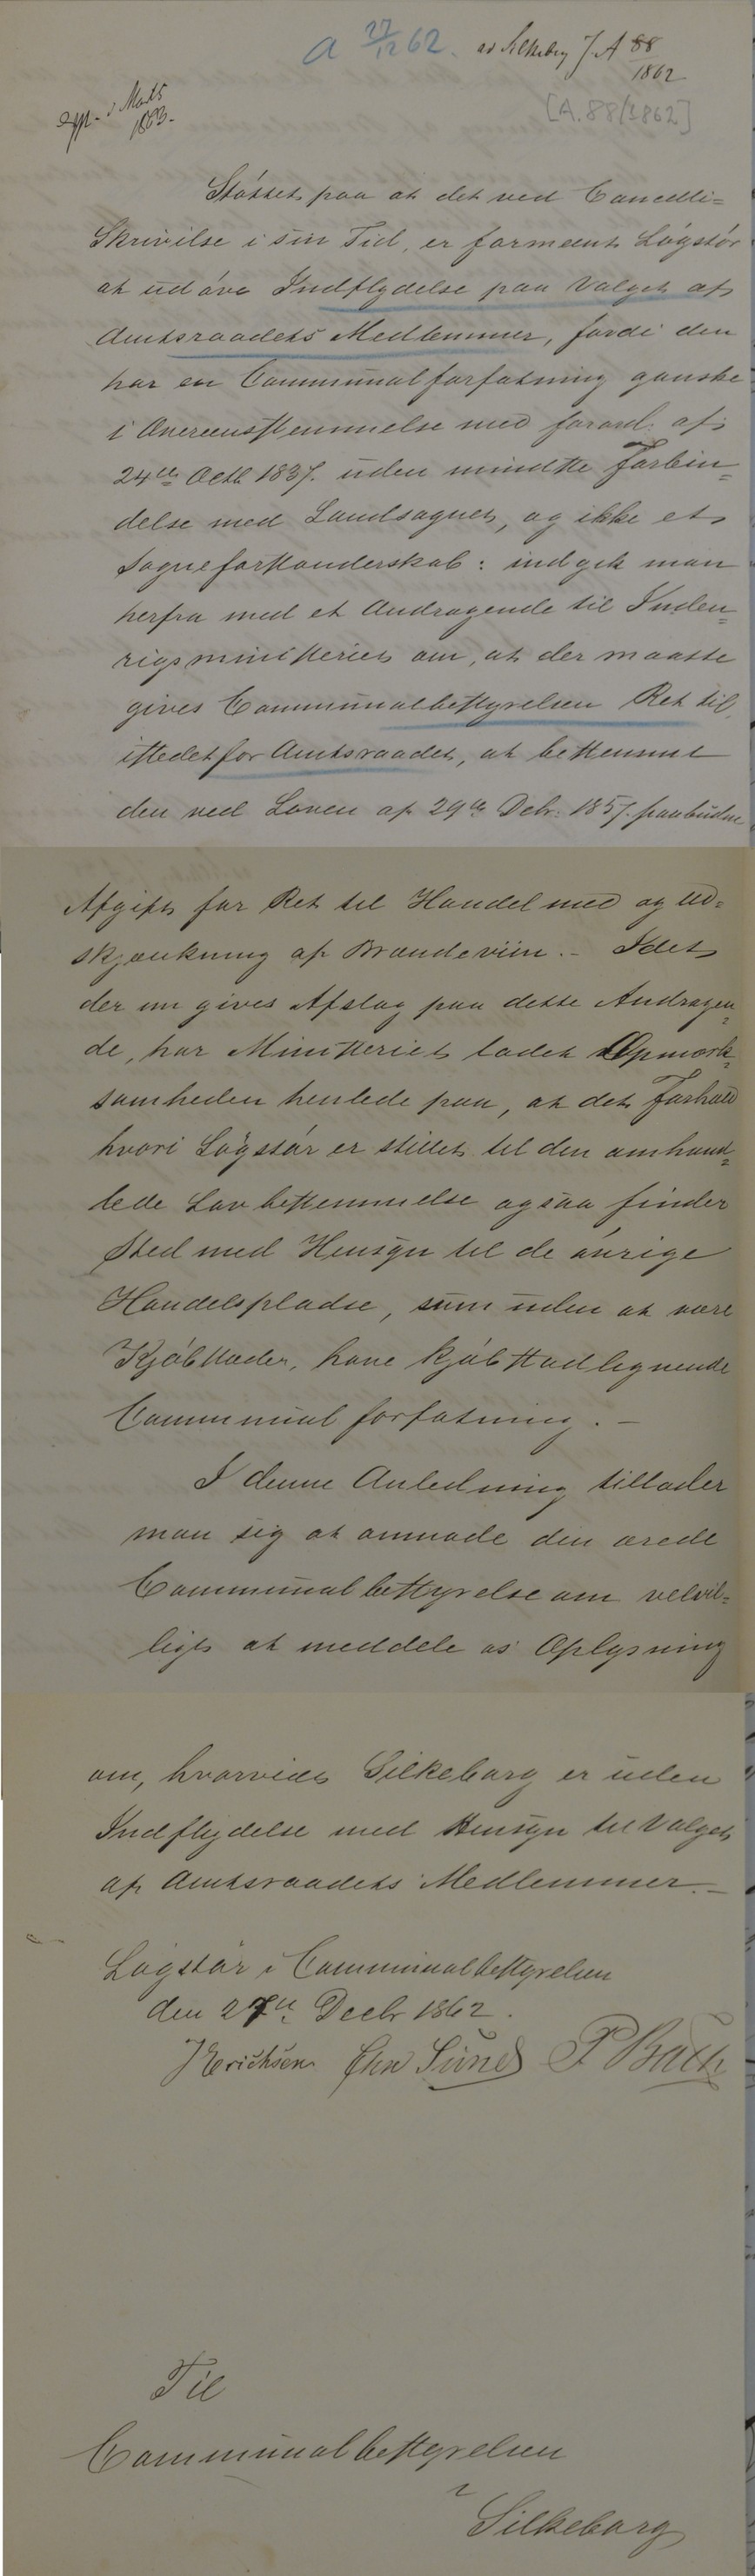 a 27/12 62. ad Silkeborg J. A 88/1862
[A.88/1862]
Marts
1863.
Støttet paa at det ved Cancelli=
Skrivilse i sin Tid, er formeent Løgstør
at udøve Indflydelse paa Valget af
Amtsraadets Medlemmer, fordi den
har en Communalforfatning ganske
i Overeensstemmelse med forord: af
24de Octb 1837. uden mindste Forbin=
delse med Landsognet, og ikke et
Sogneforstanderskab: indgik man
herfra med et Andragende til Inden=
rigsministeriet om, at der maatte
gives Communalbestyrelsen Ret til,
istedetfor Amtsraadet, at bestemme
den ved Loven af 29de Debr: 1857. paabudne
Afgift for Ret til Handel med og Ud=
skjænkning af Brændeviin. - Idet
der nu gives Afslag paa dette Andragen=
de, har Ministeriet ladet Opmærk=
somheden henlede paa, at det Forhold
hvori Løgstør er stillet til den omhand=
lede Lovbestemmelse ogsaa finder
Sted med Hensyn til de øvrige
Handelspladse, som uden at være
Kjøbstæder, have kjøbstadlignende
Communal forfatning. -
I denne Anledning tillader
man sig at anmode den ærede
Communalbestyrelse om velvil=
ligt at meddele os Oplysning
om, hvorvidt Silkeborg er uden
Indflydelse med Hensyn til Valget
af Amtsraadets Medlemmer. -
Løgstør i Communalbestyrelsen
den 27de Decbr 1862.
J Erichsen Chr Sund P Bach
Til
Communalbestyrelsen
i
Silkeborg